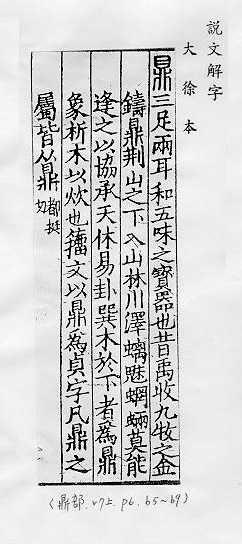 說文解字
大徐本
鼎三足兩耳和五味之寶器也昔禹收九牧之金
鑄鼎荊山之下入山林川澤螭魅蝄蜽莫能
逢之以協承天休易卦巽木於下者為鼎
象析木以炊也籀文以鼎為貞字凡鼎之
屬皆从鼎 都挺切
(鼎部.v7上.p6.b5~b9)